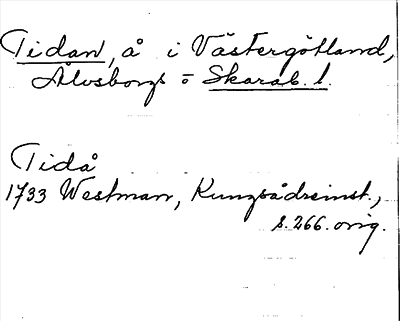 Tidan, å i Västergötland,
Älvsborgs o Skarab. l.
Tidå
1733 Westman, Kungsådreinst.,
s. 266. orig.